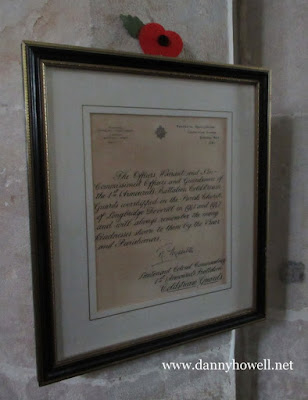 The Officers, Warrant and Non-
Commissioned Officers and Guardsmen of
the 1st Armoured Battalion Coldstream
Guards worshipped in the Parish Church
of Longbridge Deverill in 1941 and 1942
and will always remember the many
kindnesses shown to them by the Vicar
and Parishioners.
Lieutenant Colonel Commanding
1st Armoured Battalion
Coldstream Guards
www.dannyhowell.net